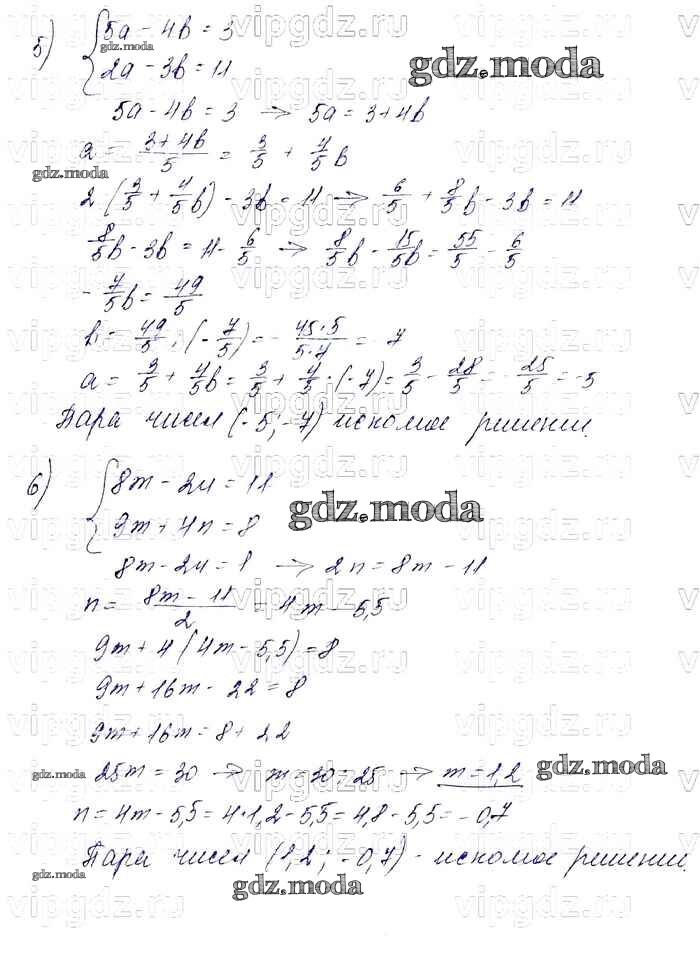 5) { 5a - 4b = 3
2a - 3b = 11
gdz.moda
5a - 4b = 3 → 5a = 3 + 4b
a = (3 + 4b)/5 = 3/5 + 4/5 b
2 (3/5 + 4/5 b) - 3b = 11 → 6/5 + 8/5 b - 3b = 11
8/5 b - 3b = 11 - 6/5 → 8/5 b - 15/5b = 55/5 - 6/5
- 7/5 b = 49/5
b = 49/5 : (- 7/5) = - 45·5/5·7 = - 7
a = 3/5 + 4/5 b = 3/5 + 4/5 · (-7) = 3/5 - 28/5 = - 25/5 = -5
Пара чисел (-5; -7) искомое решении.
6) { 8m - 2n = 11
9m + 4n = 8
gdz.moda
8m - 2n = 1 → 2n = 8m - 11
n = (8m - 11)/2 = 4m - 5,5
9m + 4 (4m - 5,5) = 8
9m + 16m - 22 = 8
9m + 16m = 8 + 22
25m = 30 → m = 30 : 25 → m = 1,2
gdz.moda
n = 4m - 5,5 = 4·1,2 - 5,5 = 4,8 - 5,5 = - 0,7
Пара чисел (1,2 ; -0,7) - искомое решении.
gdz.moda
vipgdz.ru